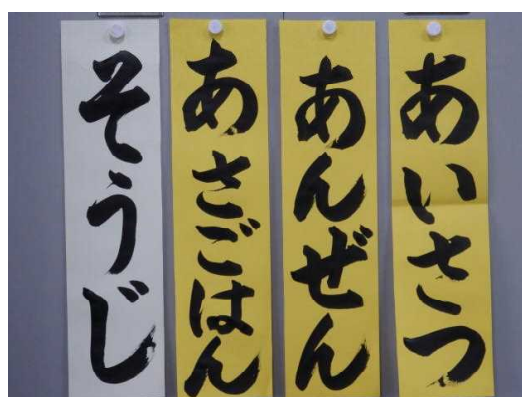 あいさつ
あんぜん
あさごはん
そうじ